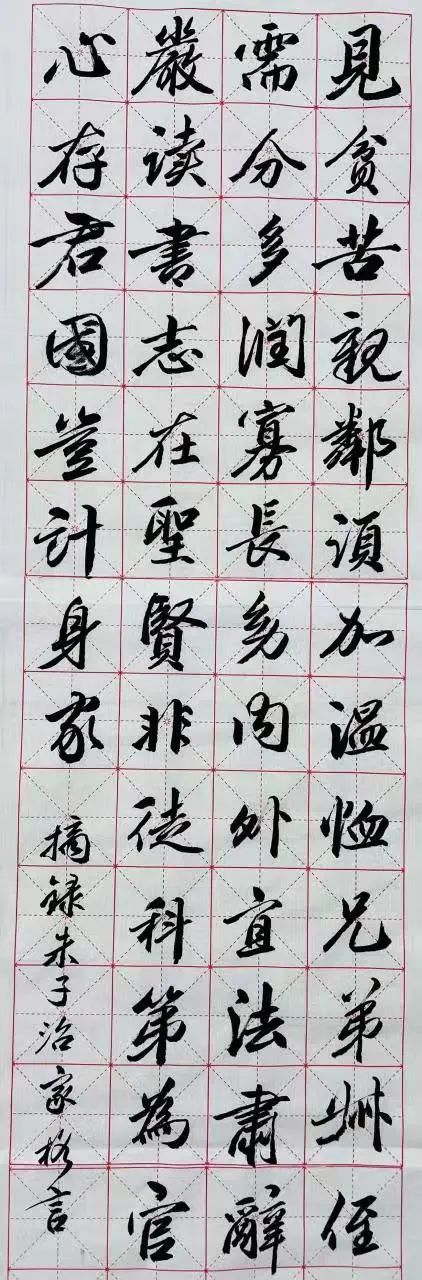 見貧苦親鄰須加温恤兄弟叔侄
需分多潤寡長幼内外宜法肅辭
嚴读書志在聖賢非徒科第為官
心存君國豈計身家
摘録朱子治家格言